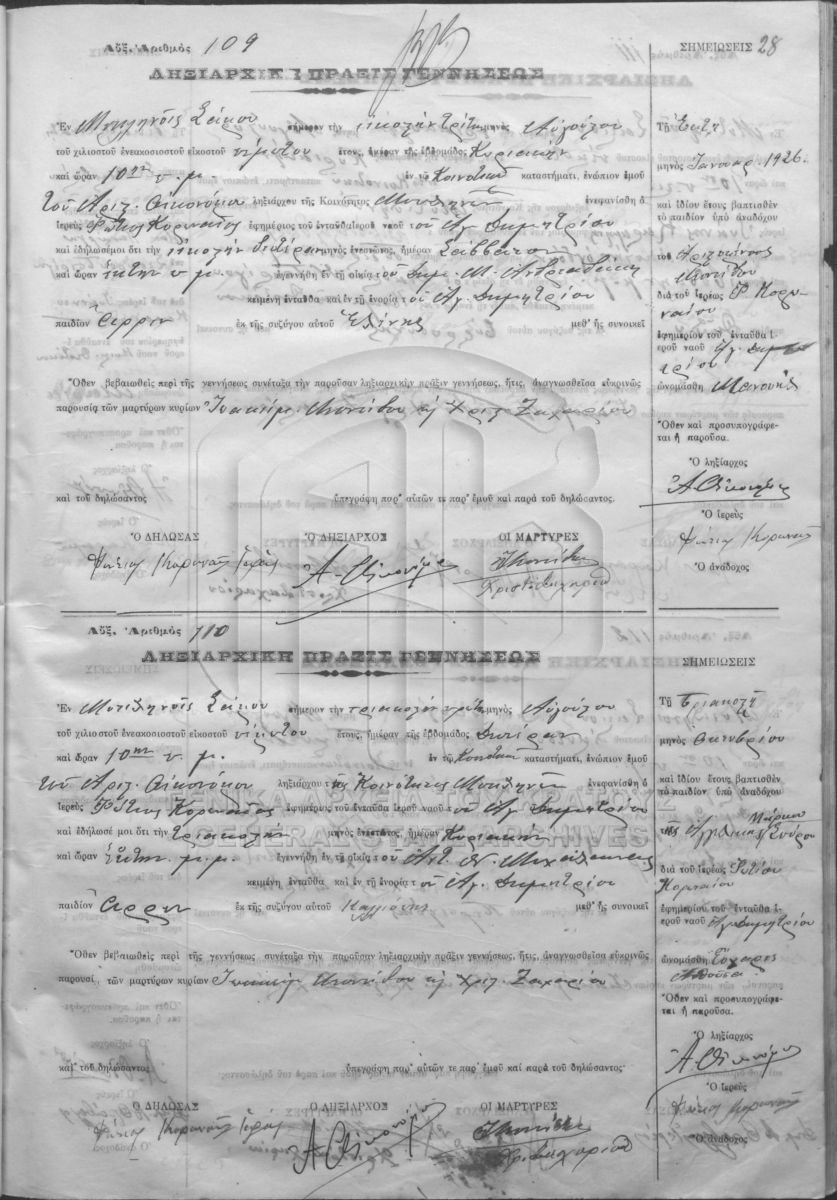 28
Αὔξ. Ἀριθμὸς 109
ΣΗΜΕΙΩΣΕΙΣ
ΛΗΞΙΑΡΧΙΚΗ ΠΡΑΞΙΣ ΓΕΝΝΗΣΕΩΣ
Ἐν Σάμου σήμερον τὴν εἰκοστὴν τρίτην μηνὸς Αὐγούστου
τοῦ χιλιοστοῦ ἐνεακοσιοστοῦ εἰκοστοῦ πέμπτου ἔτους, ἡμέραν τῆς ἑβδομάδος Κυριακὴν
καὶ ὥραν 10ην π. μ. ἐν τῷ Κοινοτικῷ καταστήματι, ἐνώπιον ἐμοῦ
τοῦ Ἀριστ. Οἰκονόμου ληξιάρχου τῆς Κοινότητος ἐνεφανίσθη ὁ
Ἱερεὺς Φώτιος Κορωναῖος ἐφημέριος τοῦ ἐνταῦθα ἱεροῦ ναοῦ τοῦ Ἁγ. Δημητρίου
καὶ ἐδήλωσέ μοι ὅτι τὴν εἰκοστὴν δευτέραν μηνὸς ἐνεστῶτος, ἡμέραν Σάββατον
καὶ ὥραν ἕκτην π. μ. ἐγεννήθη ἐν τῇ οἰκίᾳ τοῦ Δημ. Μ.
κειμένη ἐνταῦθα καὶ ἐν τῇ ἐνορίᾳ τοῦ Ἁγ. Δημητρίου
παιδίον ἄρρεν ἐκ τῆς συζύγου αὐτοῦ Ἑλένης μεθ' ἧς συνοικεῖ
Ὅθεν βεβαιωθεὶς περὶ τῆς γεννήσεως συνέταξα τὴν παροῦσαν ληξιαρχικὴν πρᾶξιν γεννήσεως, ἥτις, ἀναγνωσθεῖσα εὐκρινῶς
παρουσίᾳ τῶν μαρτύρων κυρίων Ἰωακεὶμ καὶ Χρισ. Ζαχαρίου
καὶ τοῦ δηλώσαντος ὑπεγράφη παρ' αὐτῶν τε παρ' ἐμοῦ καὶ παρὰ τοῦ δηλώσαντος.
Ὁ ΔΗΛΩΣΑΣ Ὁ ΛΗΞΙΑΡΧΟΣ ΟΙ ΜΑΡΤΥΡΕΣ
Φώτιος Κορωναῖος Ἱερεὺς Α. Οἰκονόμου
Τῇ ἕκτῃ
μηνὸς Ἰανουαρ. 1926
καὶ ἰδίου ἔτους βαπτισθὲν
τὸ παιδίον ὑπὸ ἀναδόχου
τοῦ
διὰ τοῦ ἱερέως Φ. Κορω-
ναίου
ἐφημερίου τοῦ ἐνταῦθα ἱ-
εροῦ ναοῦ Ἁγ. Δημη-
τρίου
ὠνομάσθη Μανουὴλ
Ὅθεν καὶ προσυπογράφε-
ται ἡ παροῦσα.
Ὁ ληξίαρχος
Α. Οἰκονόμου
Ὁ ἱερεὺς
Φώτιος Κορωναῖος
Ὁ ἀνάδοχος
Αὔξ. Ἀριθμὸς 110
ΣΗΜΕΙΩΣΕΙΣ
ΛΗΞΙΑΡΧΙΚΗ ΠΡΑΞΙΣ ΓΕΝΝΗΣΕΩΣ
Ἐν Σάμου σήμερον τὴν τριακοστὴν πρώτην μηνὸς Αὐγούστου
τοῦ χιλιοστοῦ ἐνεακοσιοστοῦ εἰκοστοῦ πέμπτου ἔτους, ἡμέραν τῆς ἑβδομάδος Δευτέραν
καὶ ὥραν 10ην π. μ. ἐν τῷ Κοινοτικῷ καταστήματι, ἐνώπιον ἐμοῦ
τοῦ Ἀριστ. Οἰκονόμου ληξιάρχου τῆς Κοινότητος ἐνεφανίσθη ὁ
Ἱερεὺς Φώτιος Κορωναῖος ἐφημέριος τοῦ ἐνταῦθα ἱεροῦ ναοῦ τοῦ Ἁγ. Δημητρίου
καὶ ἐδήλωσέ μοι ὅτι τὴν τριακοστὴν μηνὸς ἐνεστῶτος, ἡμέραν Κυριακὴν
καὶ ὥραν ἕκτην μ. μ. ἐγεννήθη ἐν τῇ οἰκίᾳ τοῦ Ἀντ. Ν.
κειμένη ἐνταῦθα καὶ ἐν τῇ ἐνορίᾳ τοῦ Ἁγ. Δημητρίου
παιδίον ἐκ τῆς συζύγου αὐτοῦ Καλλιόπης μεθ' ἧς συνοικεῖ
Ὅθεν βεβαιωθεὶς περὶ τῆς γεννήσεως συνέταξα τὴν παροῦσαν ληξιαρχικὴν πρᾶξιν γεννήσεως, ἥτις, ἀναγνωσθεῖσα εὐκρινῶς
παρουσίᾳ τῶν μαρτύρων κυρίων Ἰωακεὶμ καὶ Χρισ. Ζαχαρίου
καὶ τοῦ δηλώσαντος ὑπεγράφη παρ' αὐτῶν τε παρ' ἐμοῦ καὶ παρὰ τοῦ δηλώσαντος·
Ὁ ΔΗΛΩΣΑΣ Ὁ ΛΗΞΙΑΡΧΟΣ ΟΙ ΜΑΡΤΥΡΕΣ
Φώτιος Κορωναῖος Ἱερεὺς Α. Οἰκονόμου
Τῇ τριακοστῇ
μηνὸς Ὀκτωβρίου
καὶ ἰδίου ἔτους βαπτισθὲν
τὸ παιδίον ὑπὸ ἀναδόχου
τῆς
διὰ τοῦ ἱερέως Φωτίου
Κορωναίου
ἐφημερίου τοῦ ἐνταῦθα ἱ-
εροῦ ναοῦ Ἁγ. Δημητρίου
ὠνομάσθη
Ὅθεν καὶ προσυπογράφε-
ται ἡ παροῦσα.
Ὁ ληξίαρχος
Α. Οἰκονόμου
Ὁ ἱερεὺς
Φώτιος Κορωναῖος
Ὁ ἀνάδοχος
GENERAL STATE ARCHIVES